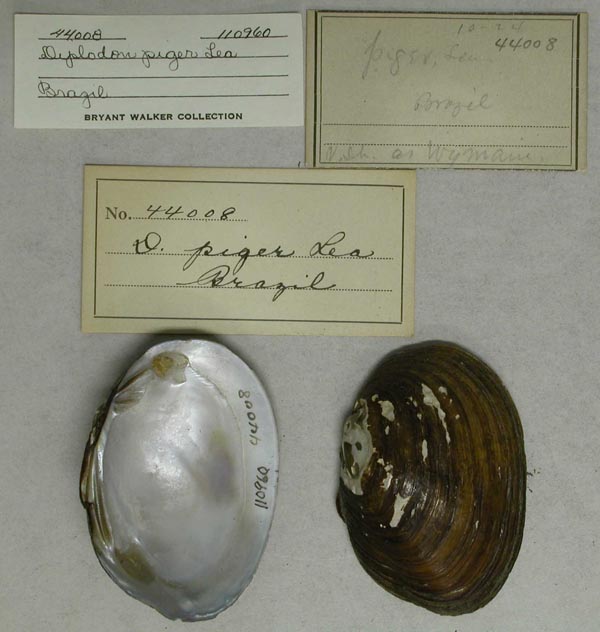 44008 110960
Diplodon piger Lea
Brazil
BRYANT WALKER COLLECTION
10-24
44008
piger, Lea
Brazil
as Wymani
No. 44008
D. piger Lea
Brazil
44008
110960